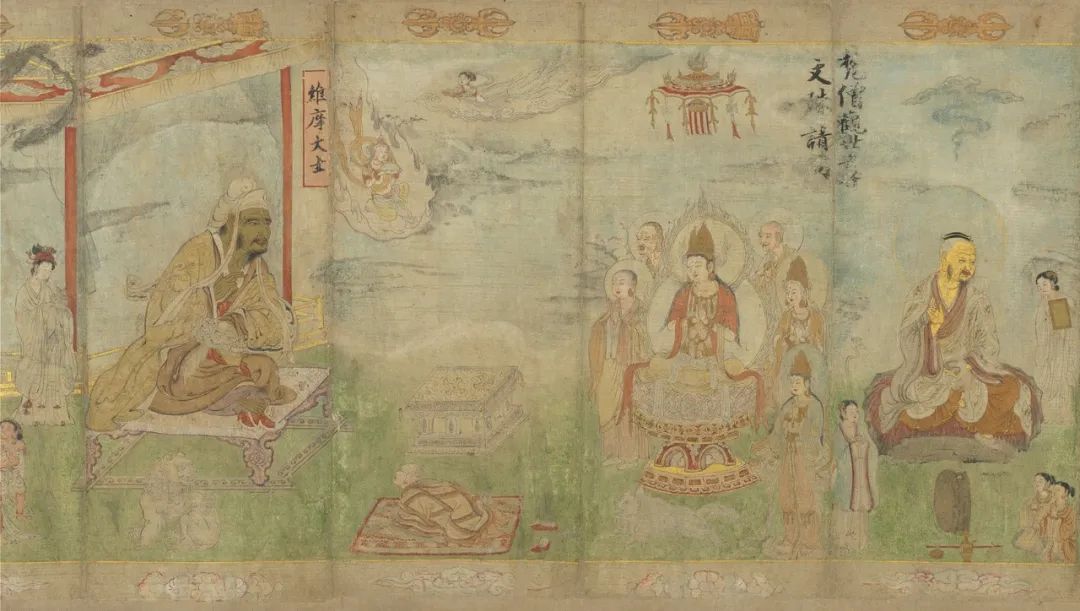 梵僧觀世音
文殊請問
維摩大士